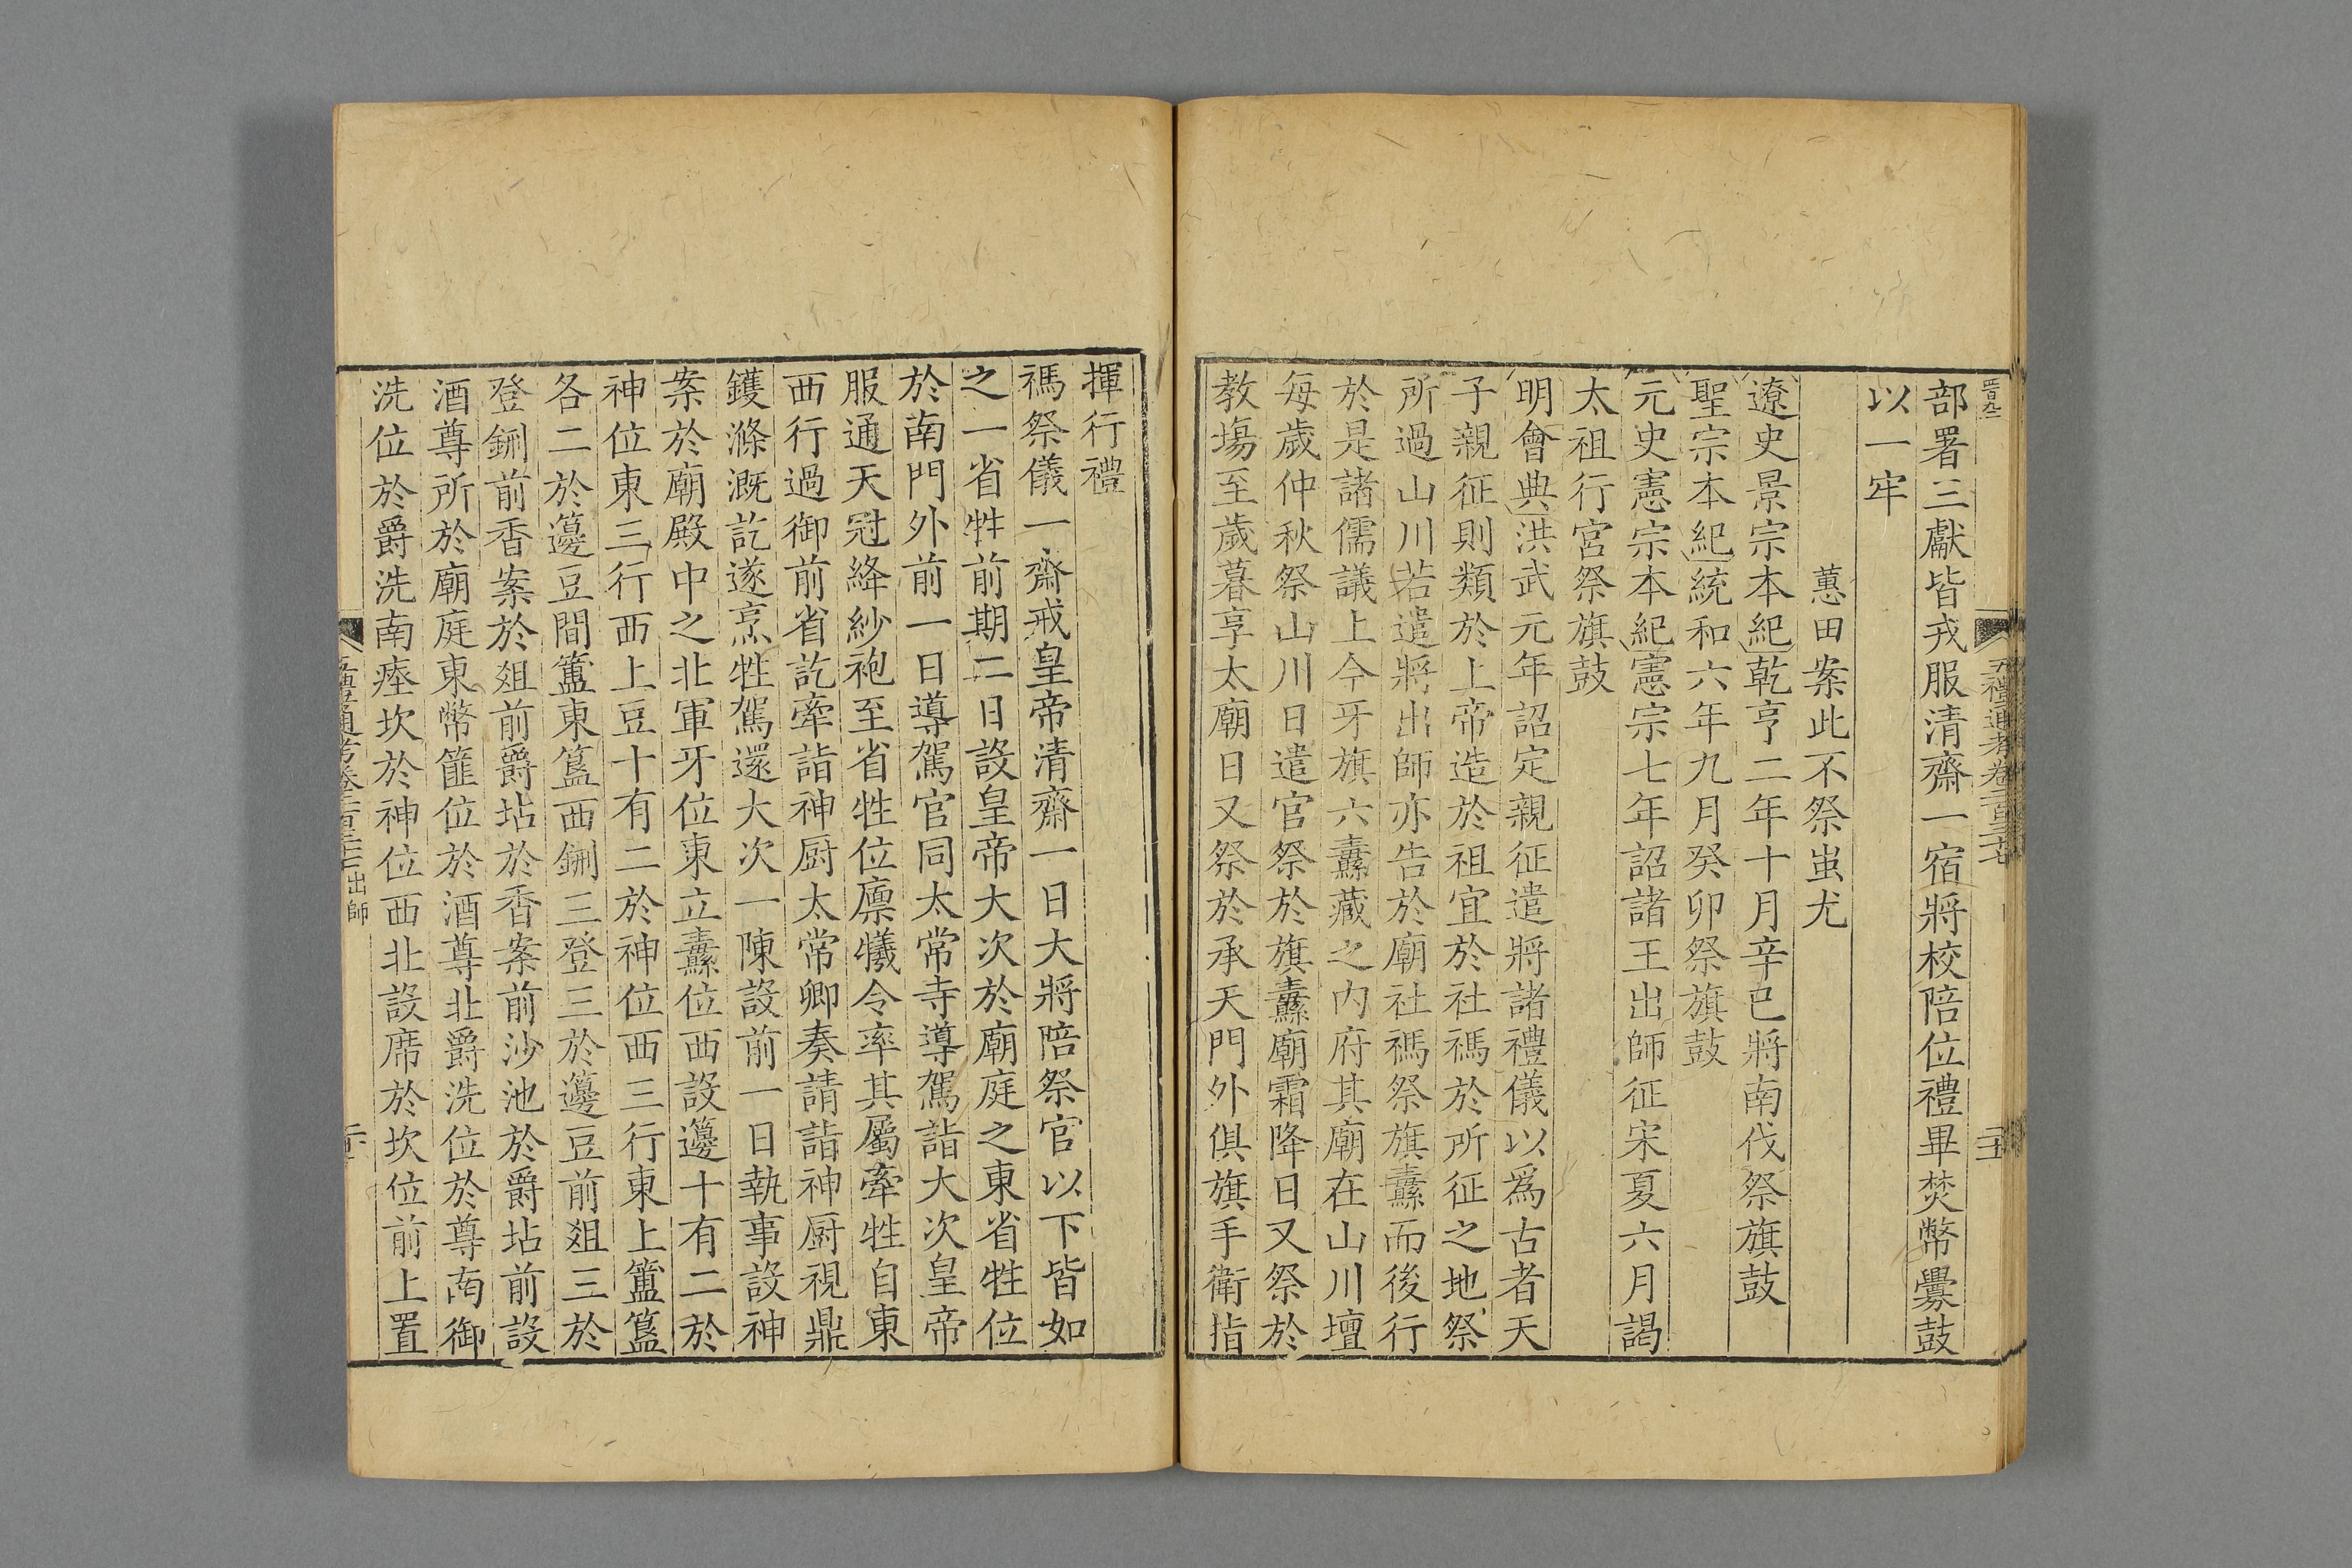 部署三獻皆戎服清齋一宿將校陪位禮畢焚幣釁鼓
以一牢
蕙田案此不祭蚩尤
遼史景宗本紀乾亨二年十月辛巳將南伐祭旗鼓
聖宗本紀統和六年九月癸卯祭旗鼓
元史憲宗本紀憲宗七年詔諸王出師征宋夏六月謁
太祖行宮祭旗鼓
明會典洪武元年詔定親征遣將諸禮儀以爲古者天
子親征則類於上帝造於祖宜於社禡於所征之地祭
所過山川若遣將出師亦告於廟社禡祭旗纛而後行
於是諸儒議上今牙旗六纛藏之内府其廟在山川壇
每歲仲秋祭山川日遣官祭於旗纛廟霜降日又祭於
教塲至歲暮享太廟日又祭於承天門外俱旗手衛指
揮行禮
禡祭儀一齋戒皇帝清齋一日大將陪祭官以下皆如
之一省牲前期二日設皇帝大次於廟庭之東省牲位
於南門外前一日導駕官同太常寺導駕詣大次皇帝
服通天冠絳紗袍至省牲位廪犧令率其屬牽牲自東
西行過御前省訖牽詣神厨太常卿奏請詣神厨視鼎
鑊滌溉訖遂烹牲駕還大次一陳設前一日執事設神
案於廟殿中之北軍牙位東立纛位西設籩十有二於
神位東三行西上豆十有二於神位西三行東上簠簋
各二於籩豆間簠東簋西鉶三登三於籩豆前爼三於
登鉶前香案於爼前爵坫於香案前沙池於爵坫前設
酒尊所於廟庭東幣篚位於酒尊北爵洗位於尊南御
洗位於爵洗南瘞坎於神位西北設席於坎位前上置
五禮通考卷二百三十七 出師